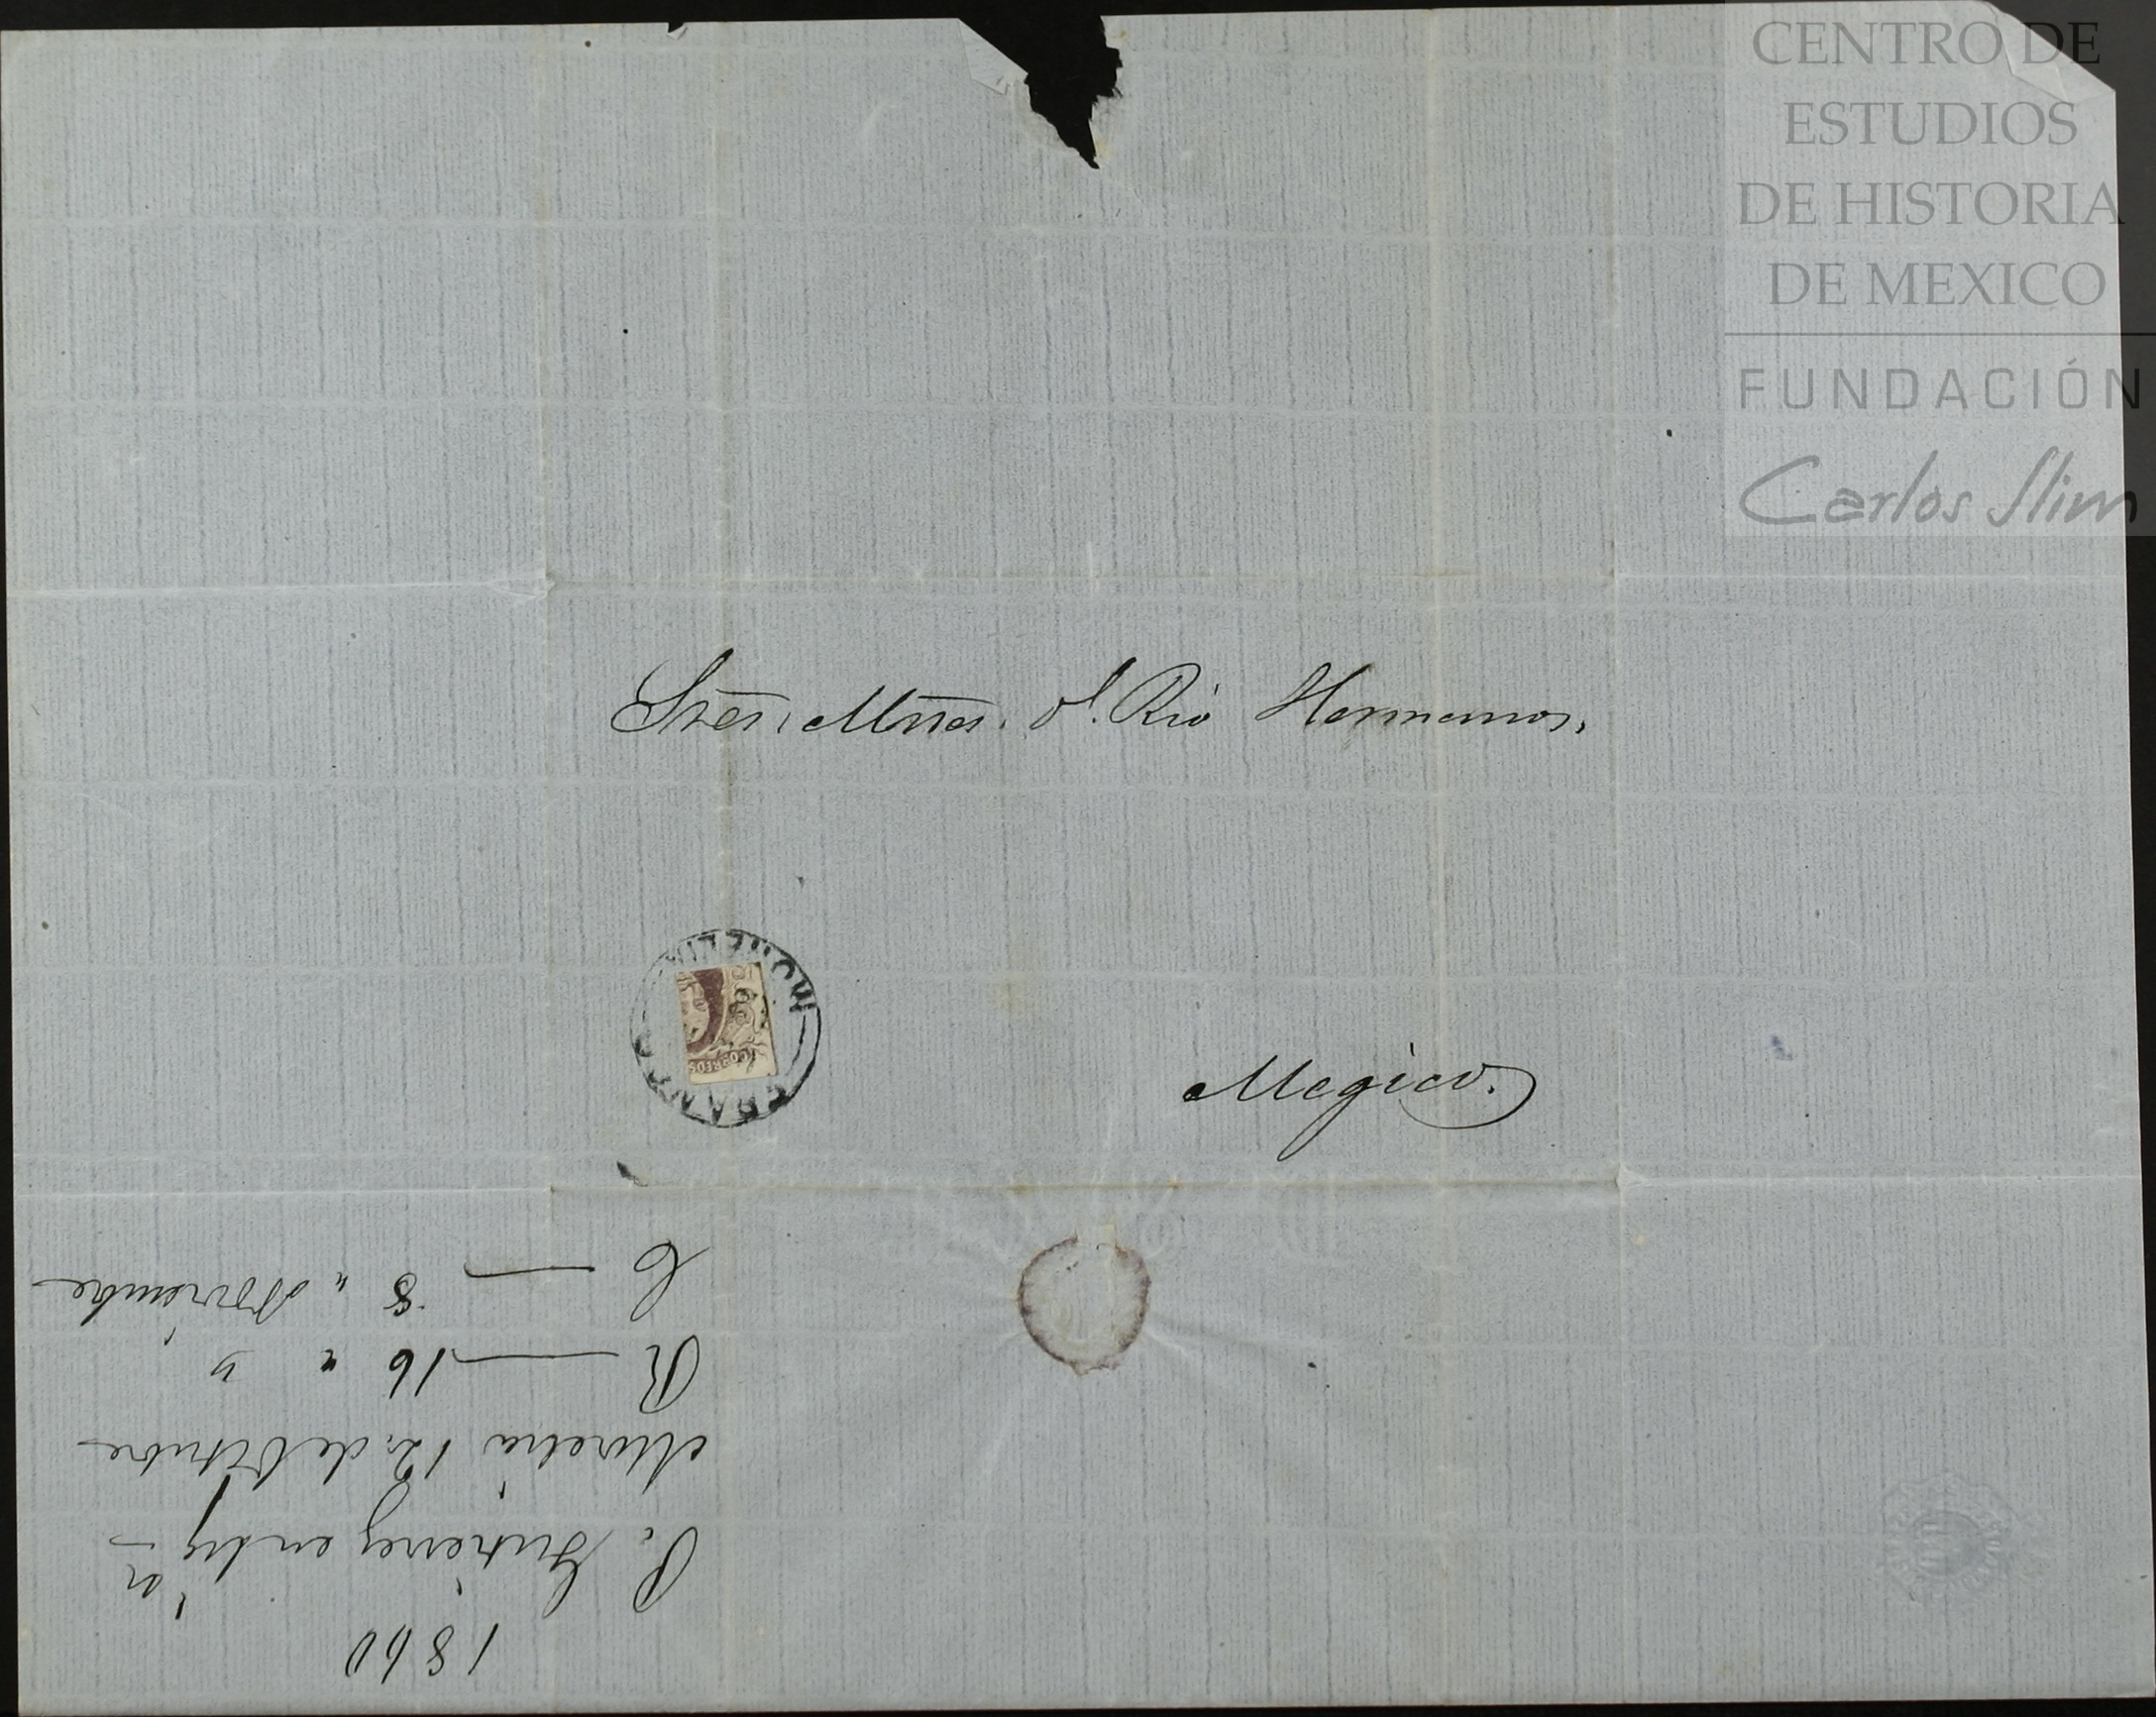 CENTRO DE
ESTUDIOS
DE HISTORIA
DE MEXICO
FUNDACIÓN
Carlos Slim
Sres. Mrtz. dl. Rio Hermanos.
MORELIA
FRANCO
CORREOS
Megico.
1860
P. Gutierrez
Morelia 12, de Octubre
R — 16 " "
C — 8 " Noviembre